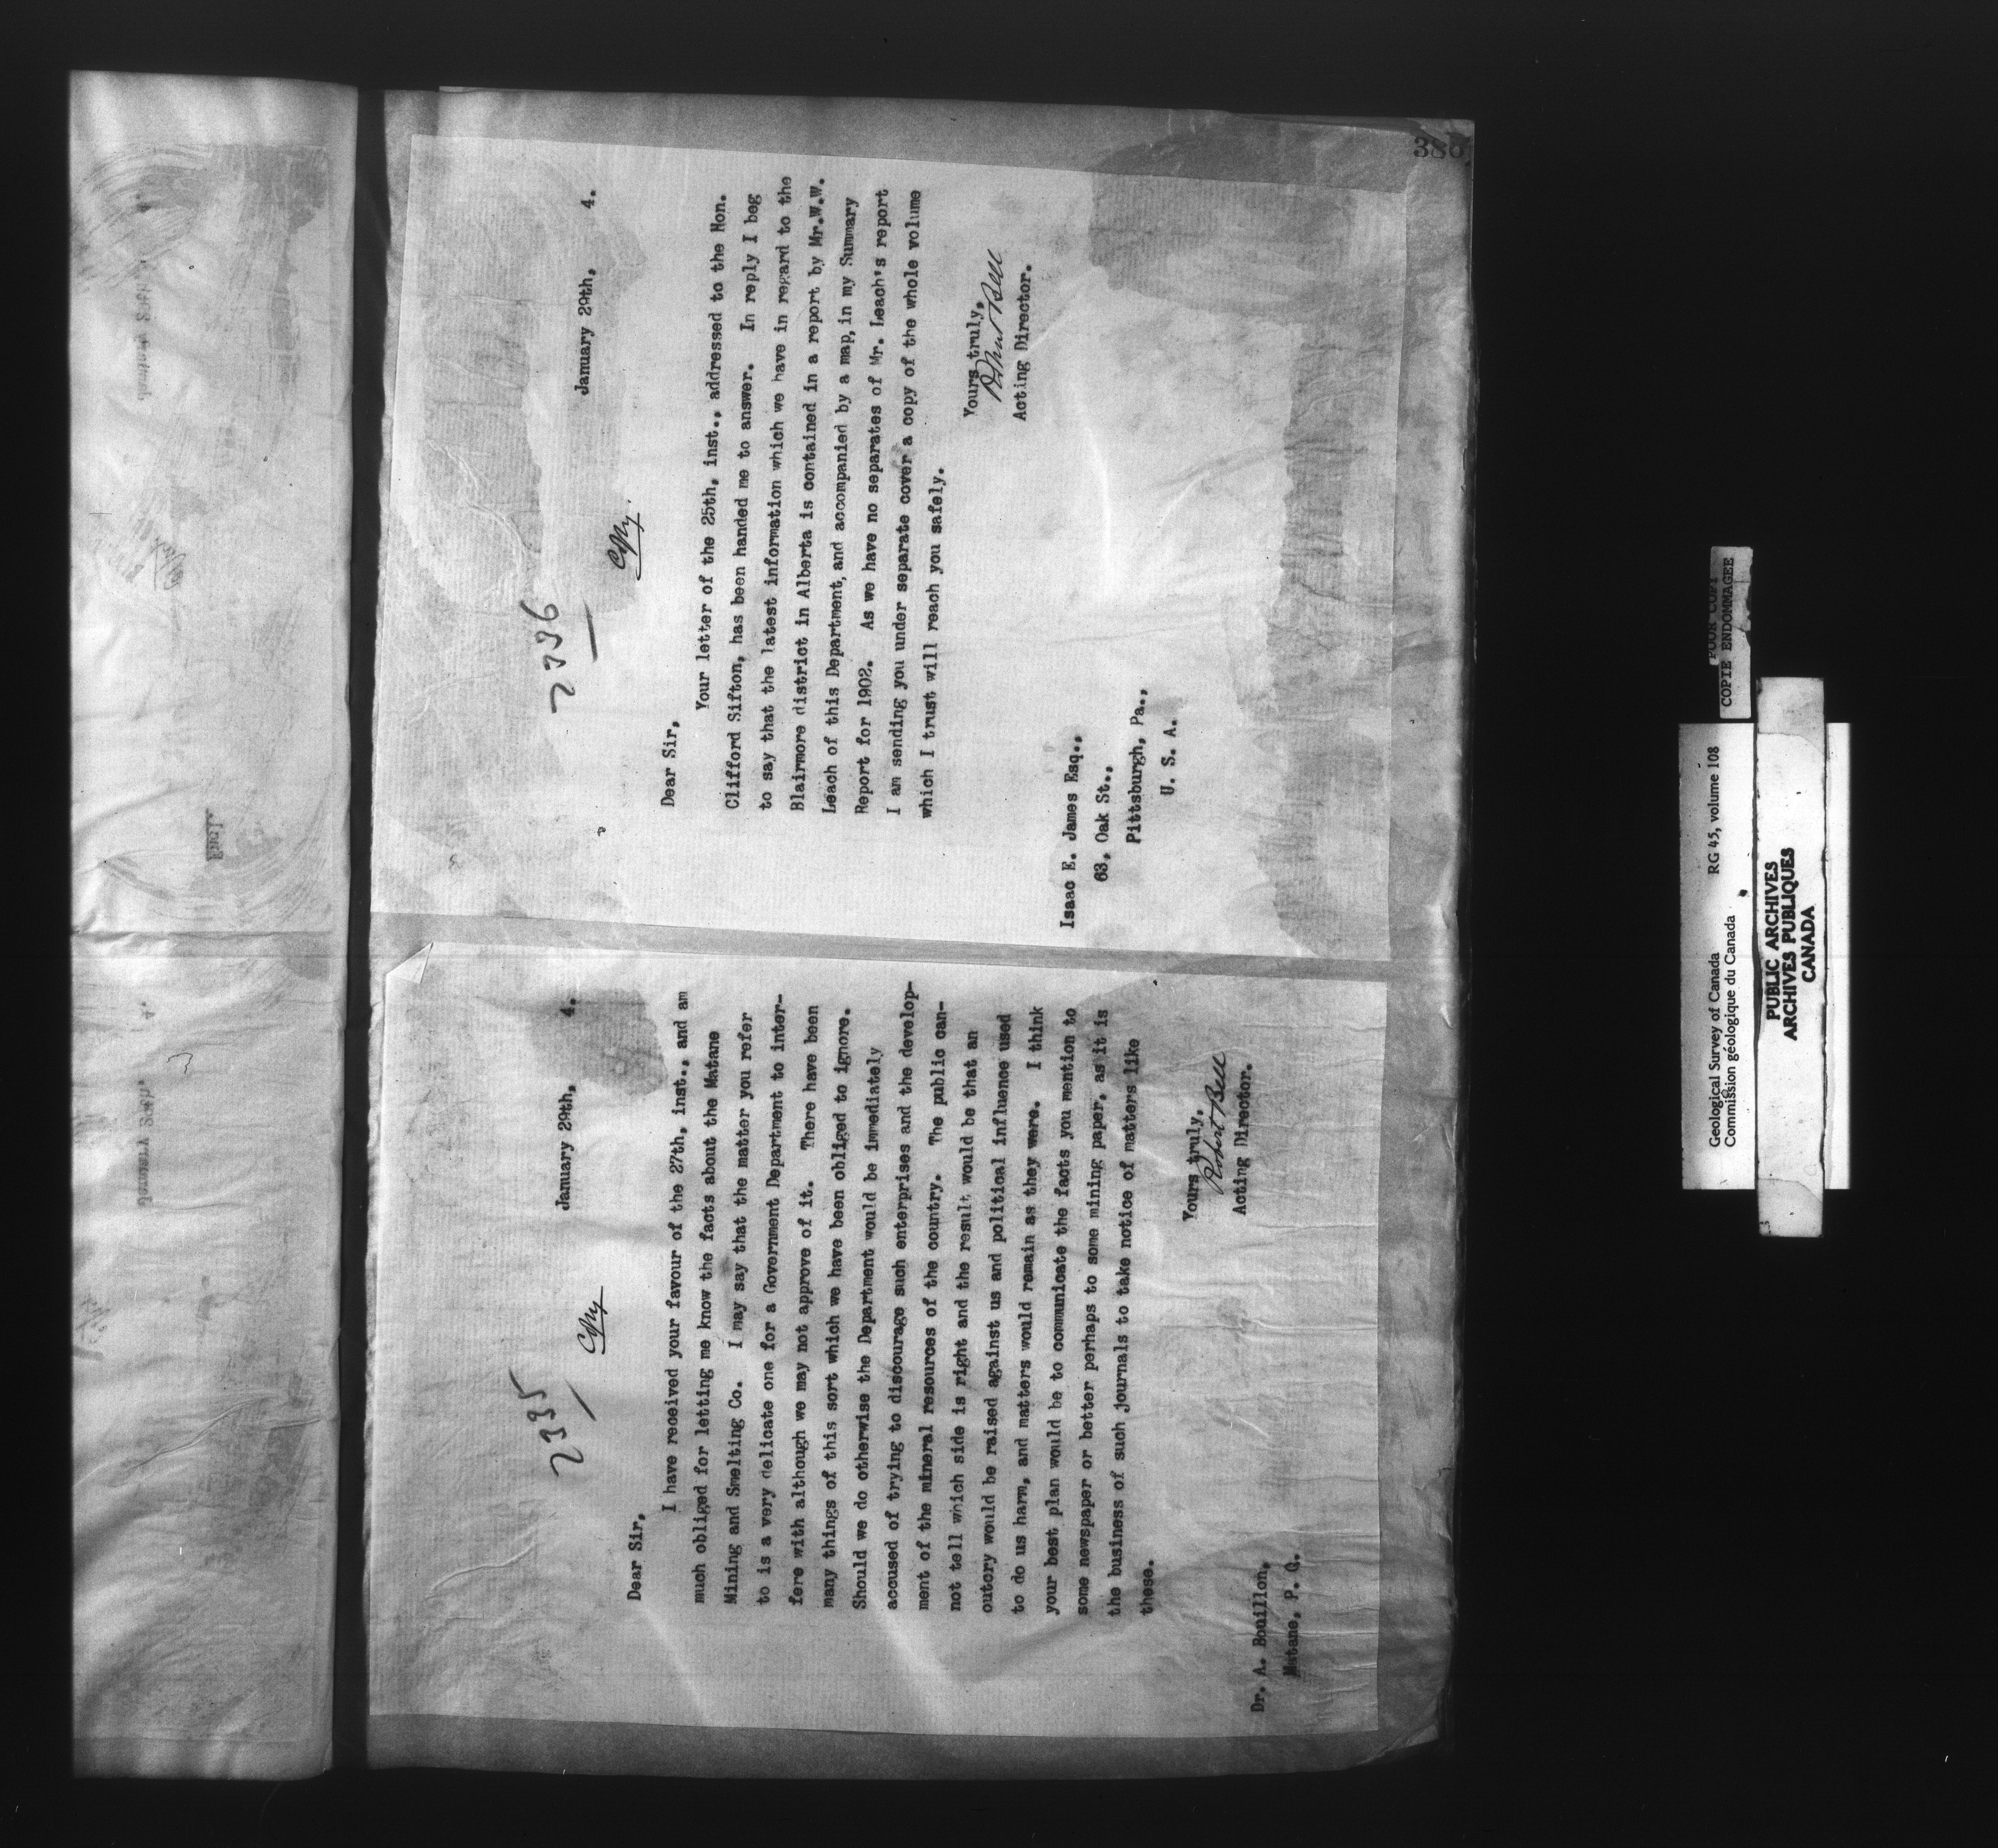 2335
Copy
January 29th, 4.
Dear Sir,
I have received your favour of the 27th, inst., and am
much obliged for letting me know the facts about the Matane
Mining and Smelting Co. I may say that the matter you refer
to is a very delicate one for a Government Department to inter-
fere with although we may not approve of it. There have been
many things of this sort which we have been obliged to ignore.
Should we do otherwise the Department would be immediately
accused of trying to discourage such enterprises and the develop-
ment of the mineral resources of the country. The public can-
not tell which side is right and the result would be that an
outcry would be raised against us and political influence used
to do us harm, and matters would remain as they were. I think
your best plan would be to communicate the facts you mention to
some newspaper or better perhaps to some mining paper, as it is
the business of such journals to take notice of matters like
these.
Yours truly,
Robert Bell
Acting Director.
Dr. A. Bouillon,
Matane, P. Q.
2336
Copy
January 29th, 4.
Dear Sir,
Your letter of the 25th, inst., addressed to the Hon.
Clifford Sifton, has been handed me to answer. In reply I beg
to say that the latest information which we have in regard to the
Blairmore district in Alberta is contained in a report by Mr.W.W.
Leach of this Department, and accompanied by a map, in my Summary
Report for 1902. As we have no separates of Mr. Leach's report
I am sending you under separate cover a copy of the whole volume
which I trust will reach you safely.
Yours truly,
Robert Bell
Acting Director.
Isaac E. James Esq.,
63, Oak St.,
Pittsburgh, Pa.,
U. S. A.
386
Geological Survey of Canada RG 45, volume 108
Commission géologique du Canada
PUBLIC ARCHIVES
ARCHIVES PUBLIQUES
CANADA
POOR COPY
COPIE ENDOMMAGEE